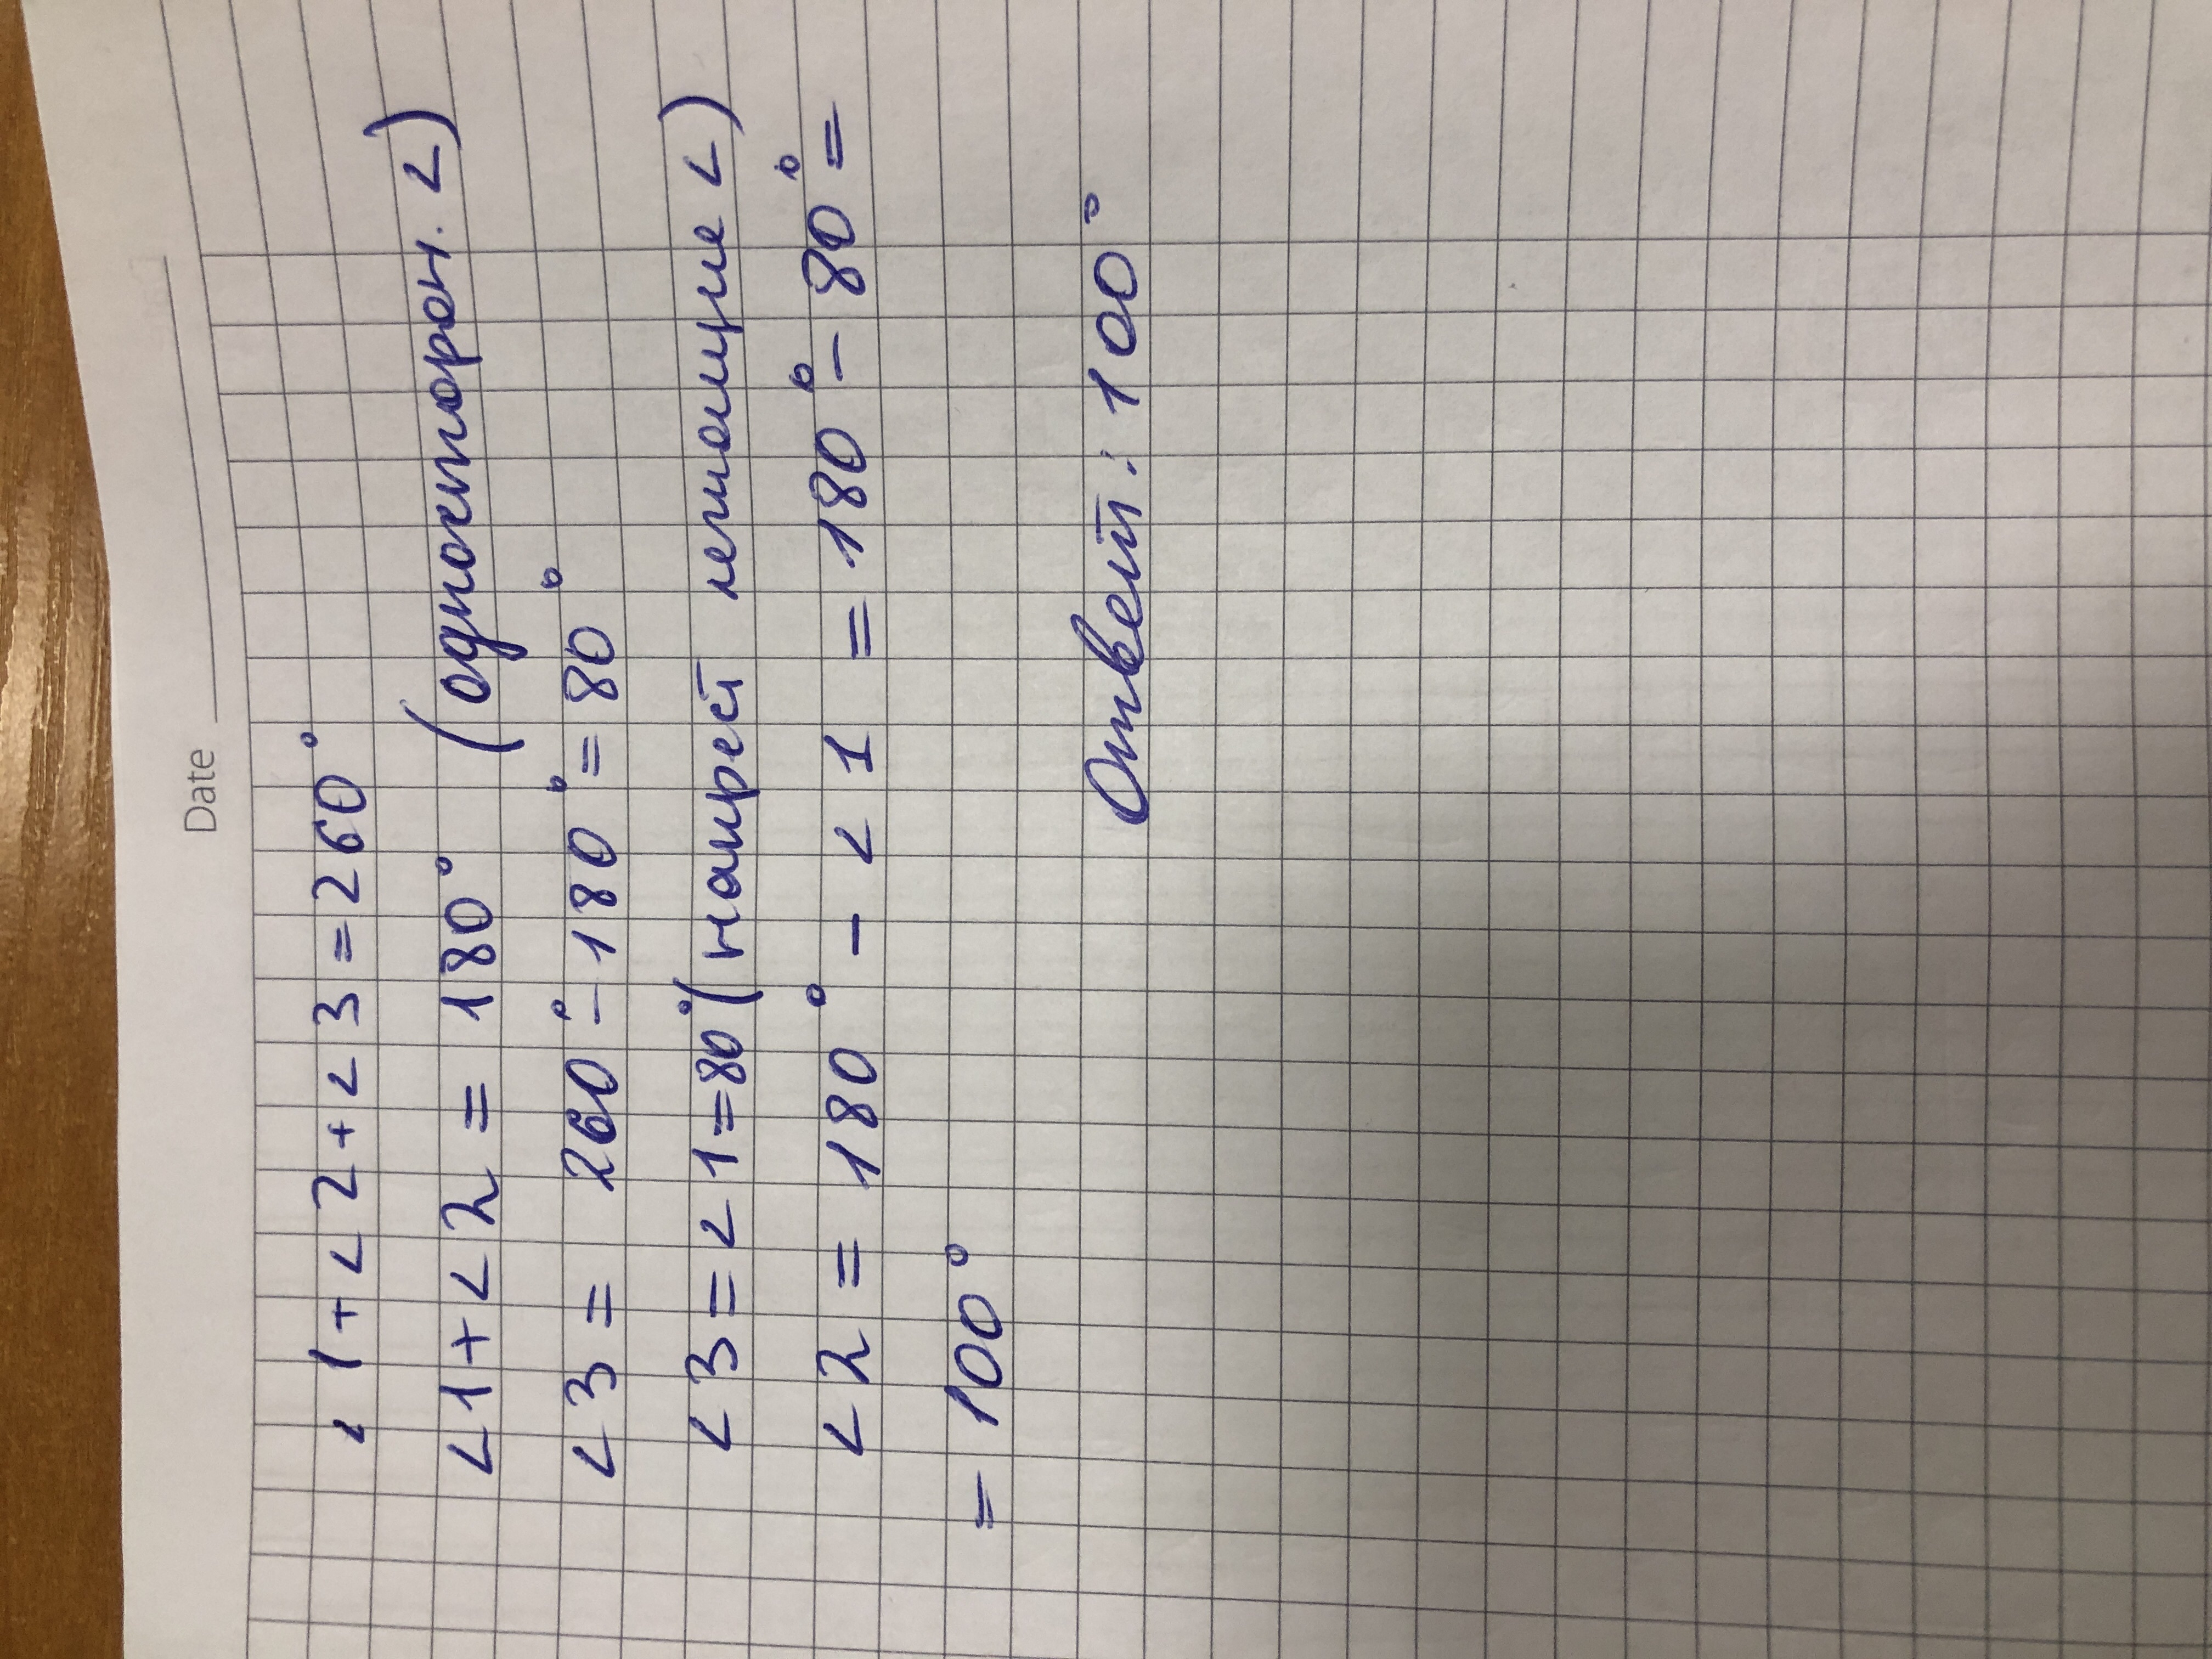 Date
∠1+∠2+∠3=260°
∠1+∠2 = 180° (одностторон. ∠)
∠3 = 260°-180°=80°
∠3=∠1=80°(накрест лежащие ∠)
∠2 = 180° - ∠1 = 180°-80°=
= 100°
Ответ: 100°